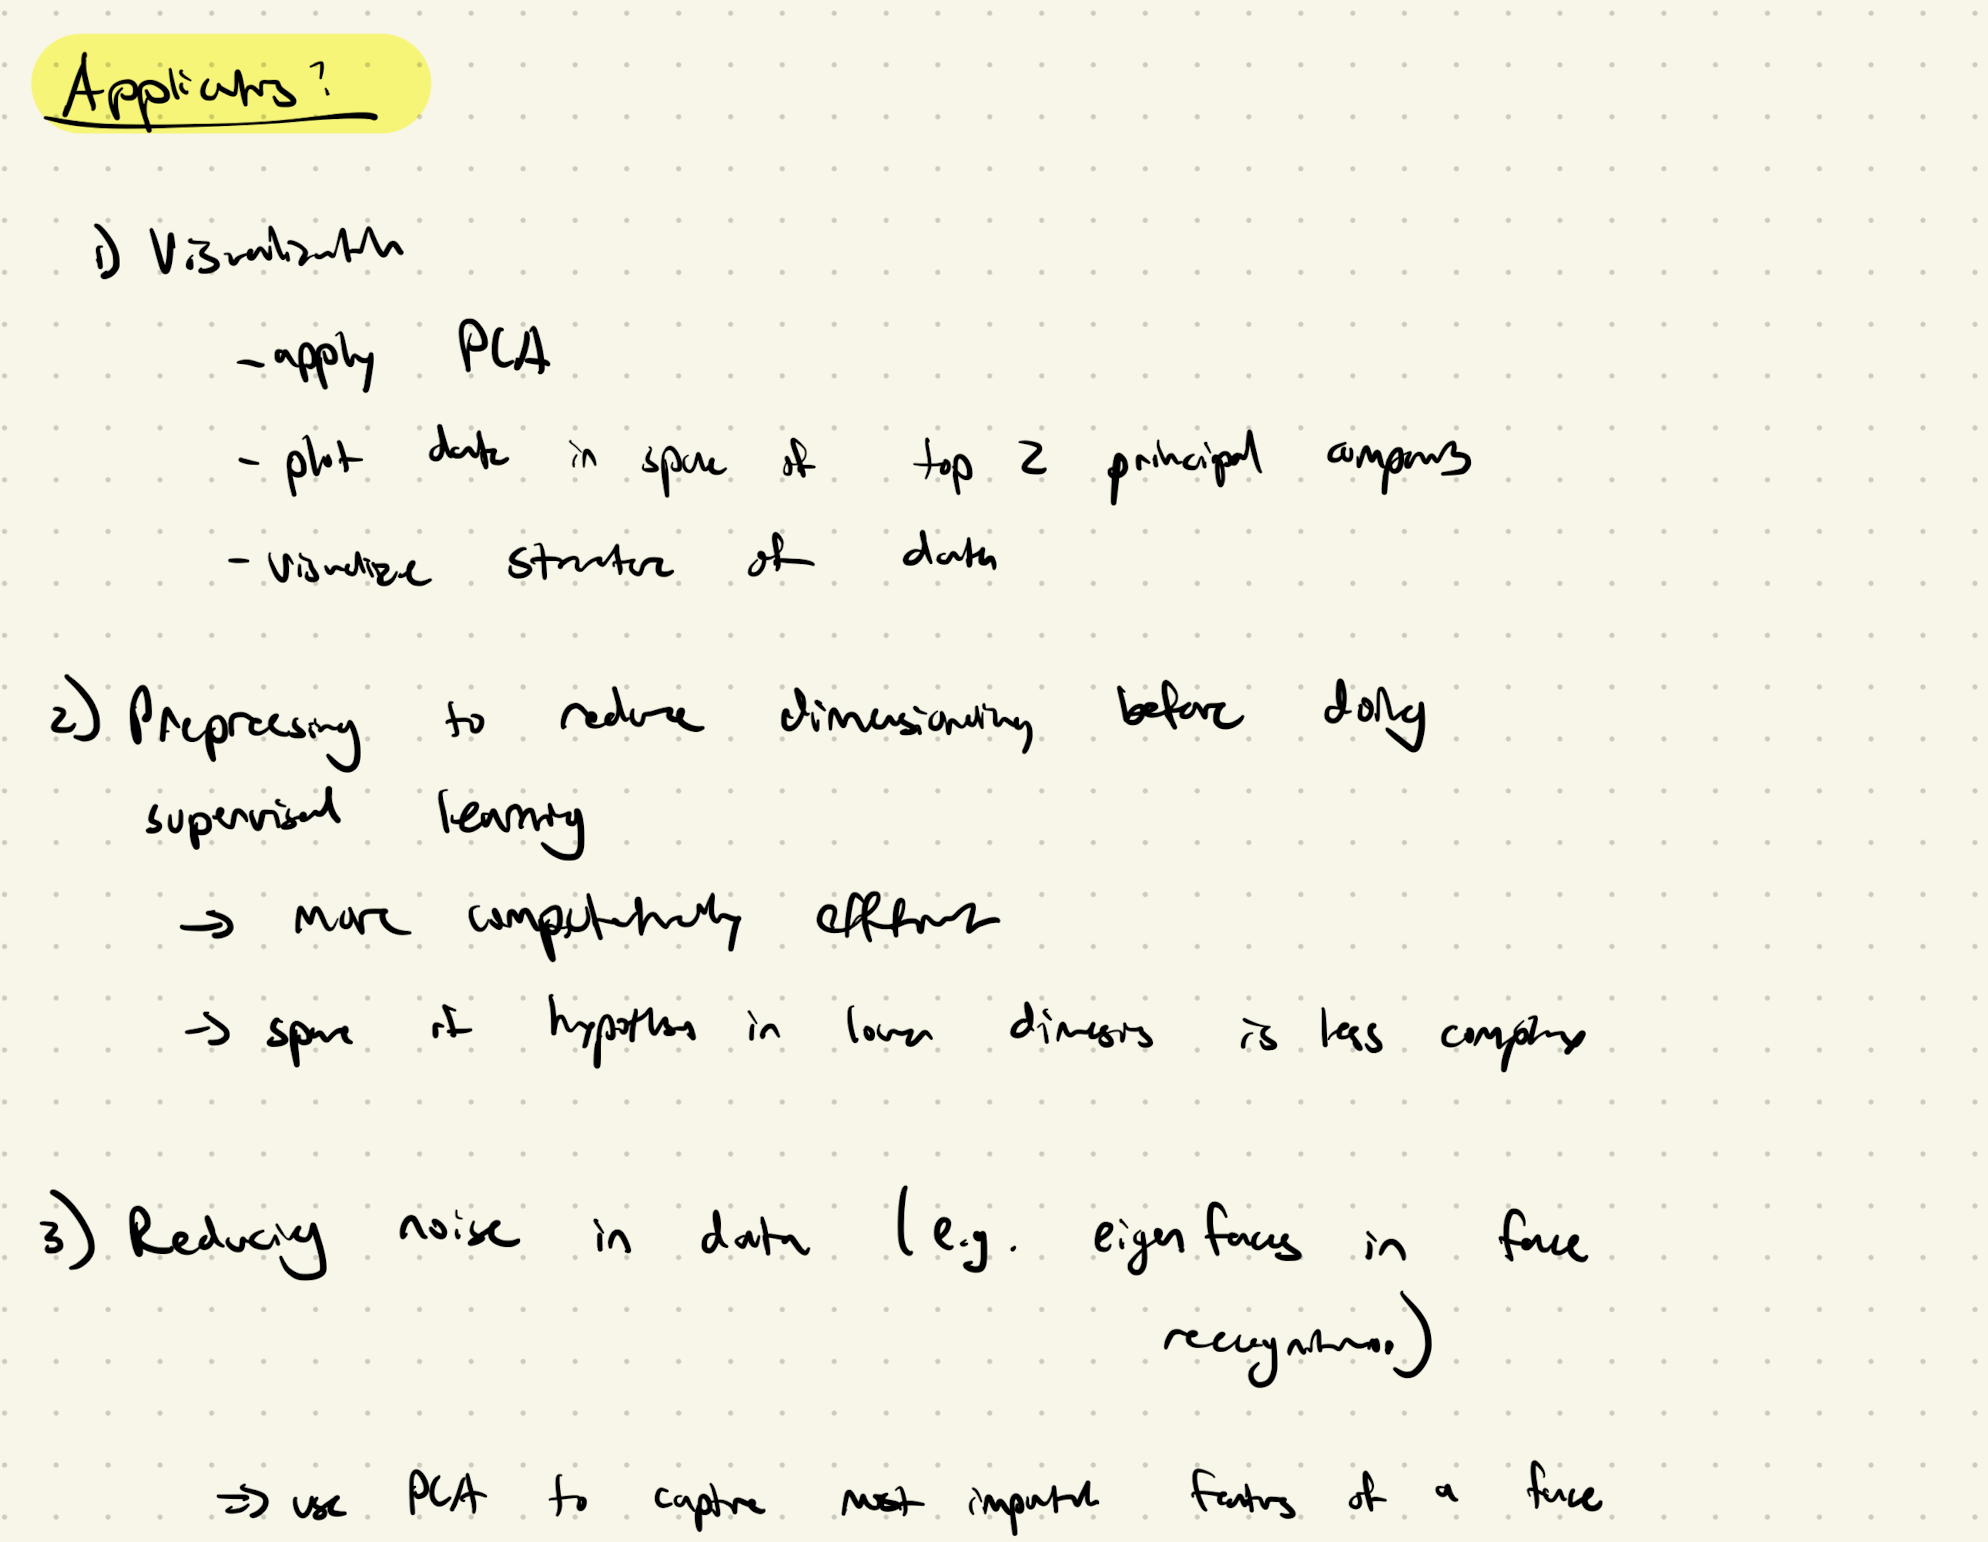 Applications?
1) Visualization
- apply PCA
- plot data in space of top 2 principal components
- visualize structure of data
2) Preprocessing to reduce dimensionality before doing
supervised learning
→ more computationally efficient
→ space of hypotheses in lower dimensions is less complex
3) Reducing noise in data (e.g. eigenfaces in face
recognition..)
⇒ use PCA to capture most important features of a face